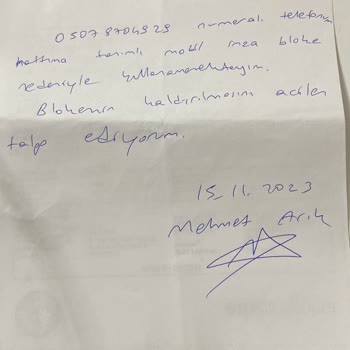 0507 8704929 numaralı telefon
hattıma tanımlı mobil imza bloke
nedeniyle kullanamamaktayım.
Blokenin kaldırılmasını acilen
talep ediyorum.
15.11.2023
Mehmet Arık